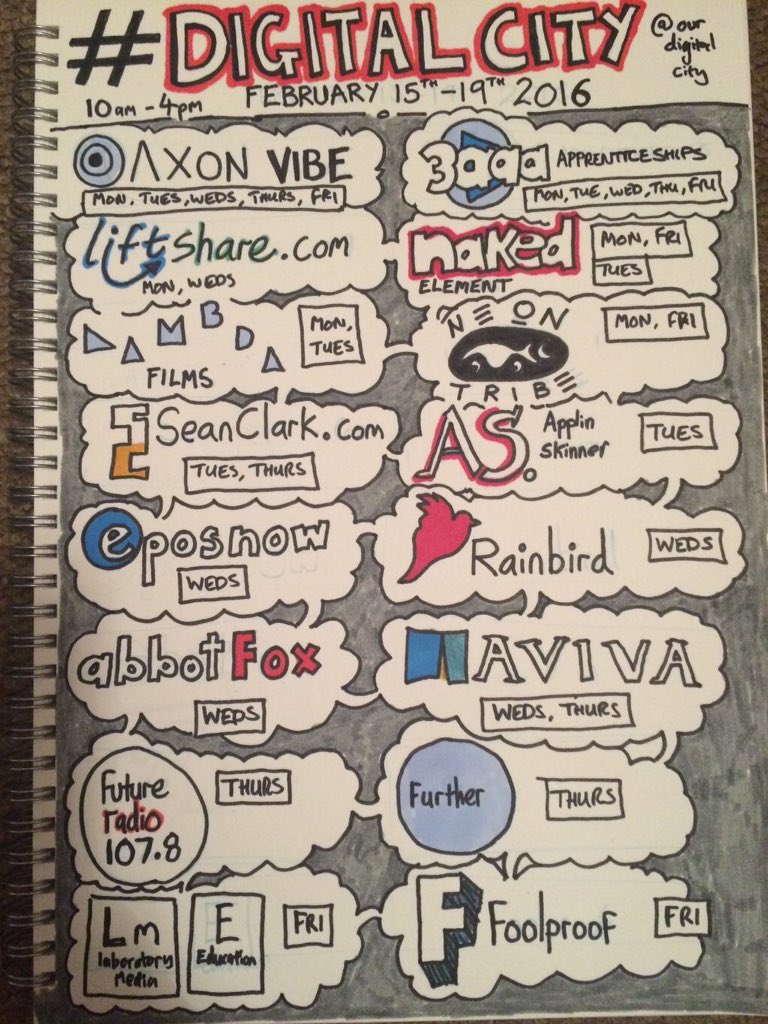 #DIGITAL CITY
@our
digital
city
10am - 4pm
FEBRUARY 15TH-19TH 2016
AXON VIBE
MON, TUES, WEDS, THURS, FRI
3aaa APPRENTICESHIPS
MON, TUE, WED, THU, FRI
liftshare.com
MON, WEDS
naked
ELEMENT
MON, FRI
TUES
LAMBDA
FILMS
MON,
TUES
NEON
TRIBE
MON, FRI
SeanClark.com
TUES, THURS
AS.
Applin
Skinner
TUES
eposnow
WEDS
Rainbird
WEDS
abbot Fox
WEDS
AVIVA
WEDS, THURS
Future
radio
107.8
THURS
Further
THURS
Lm
laboratory
Media
E
Education
FRI
F
Foolproof
FRI